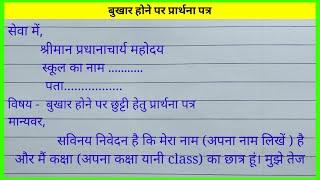 बुखार होने पर प्रार्थना पत्र
सेवा में,
श्रीमान प्रधानाचार्य महोदय
स्कूल का नाम ...........
पता..................
विषय - बुखार होने पर छुट्टी हेतु प्रार्थना पत्र
मान्यवर,
सविनय निवेदन है कि मेरा नाम (अपना नाम लिखें ) है
और मैं कक्षा (अपना कक्षा यानी class) का छात्र हूं। मुझे तेज